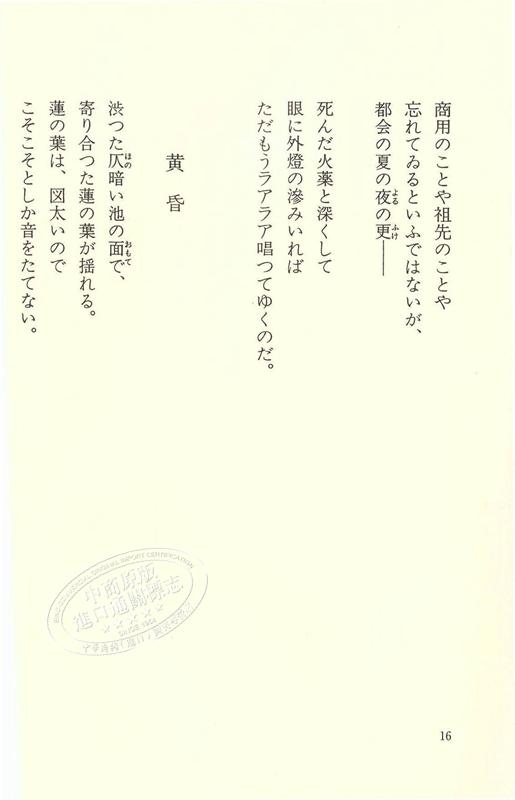 商用のことや祖先のことや
忘れてゐるといふではないが、
都会の夏の夜の更――
よる
ふけ
死んだ火薬と深くして
眼に外燈の滲みいれば
ただもうラアラア唱つてゆくのだ。
黄昏
渋つた仄暗い池の面で、
ほの
おもて
寄り合つた蓮の葉が揺れる。
蓮の葉は、図太いので
こそこそとしか音をたてない。
中商原版
進口通關標志
16